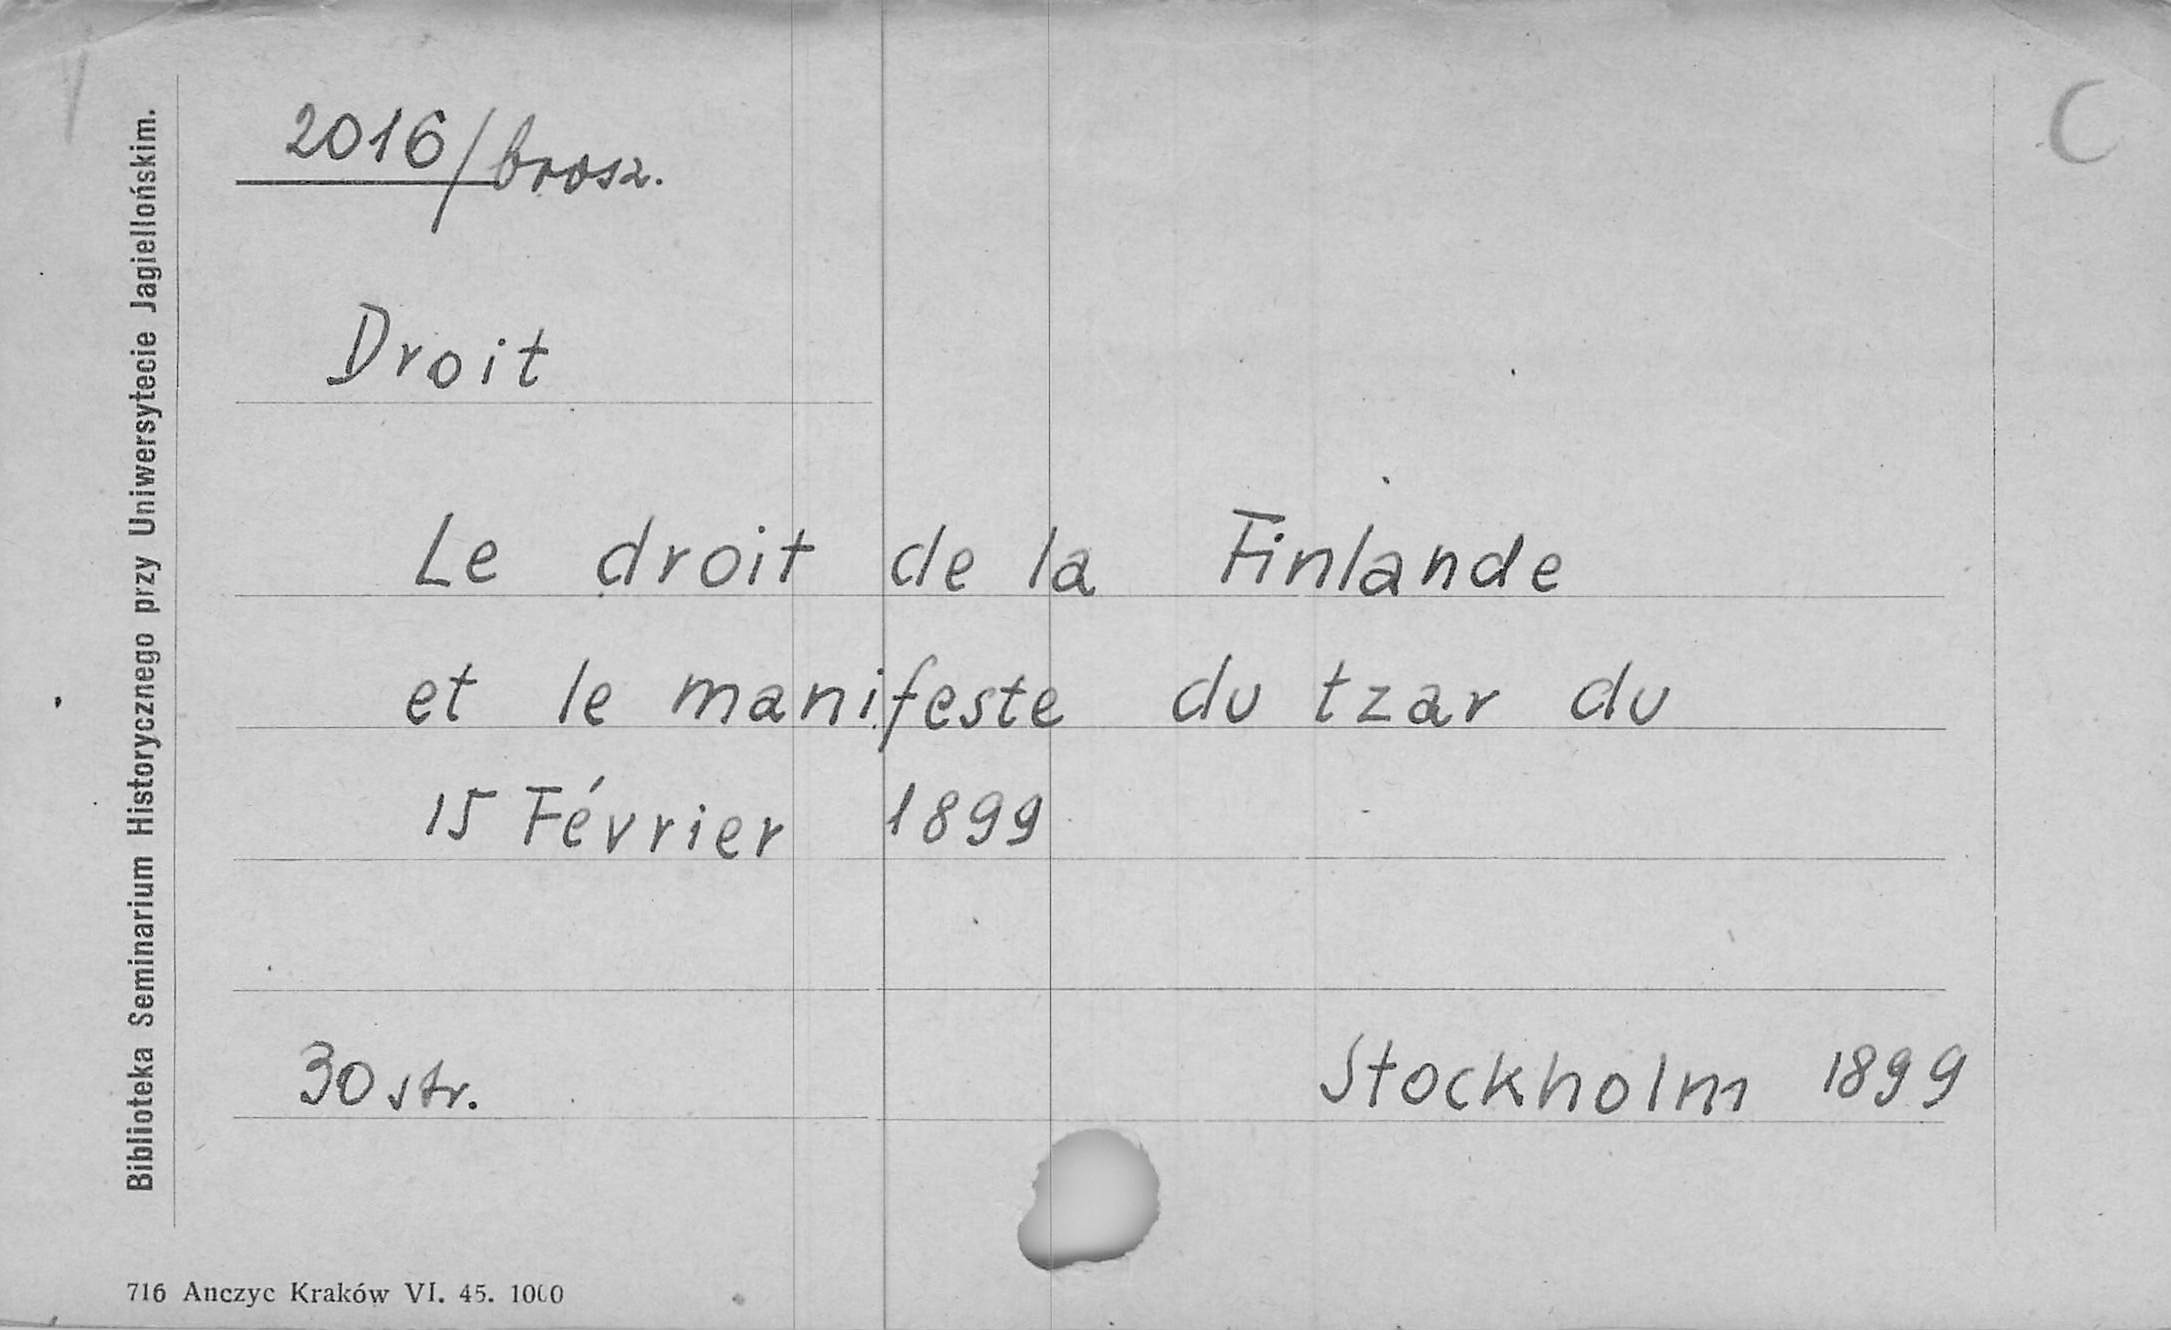 2016/brosz.
C
Droit
Le droit de la Finlande
et le manifeste du tzar du
15 Février 1899
30 str.
Stockholm 1899
Biblioteka Seminarium Historycznego przy Uniwersytecie Jagiellońskim.
716 Anczyc Kraków VI. 45. 1000